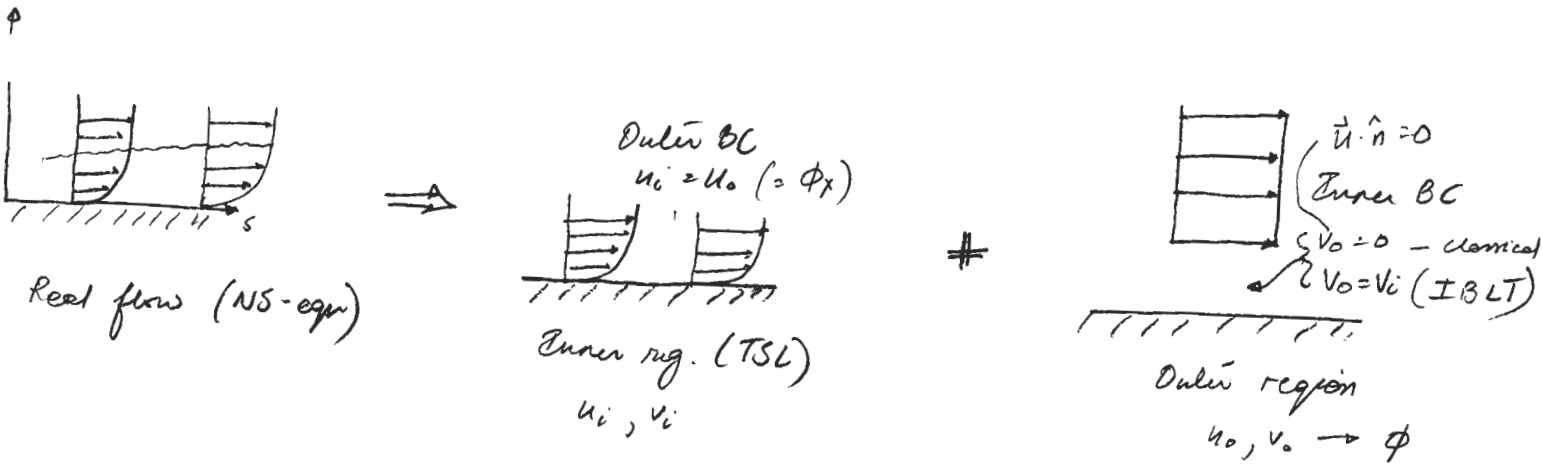 s
Real flow (NS-eqn)
⇒
Outer BC
u_i = u_o (= ϕ_x)
Inner reg. (TSL)
u_i, v_i
+
u⃗ · n̂ = 0
Inner BC
{ v_o = 0 – classical
v_o = v_i (IBLT)
Outer region
u_o, v_o → ϕ